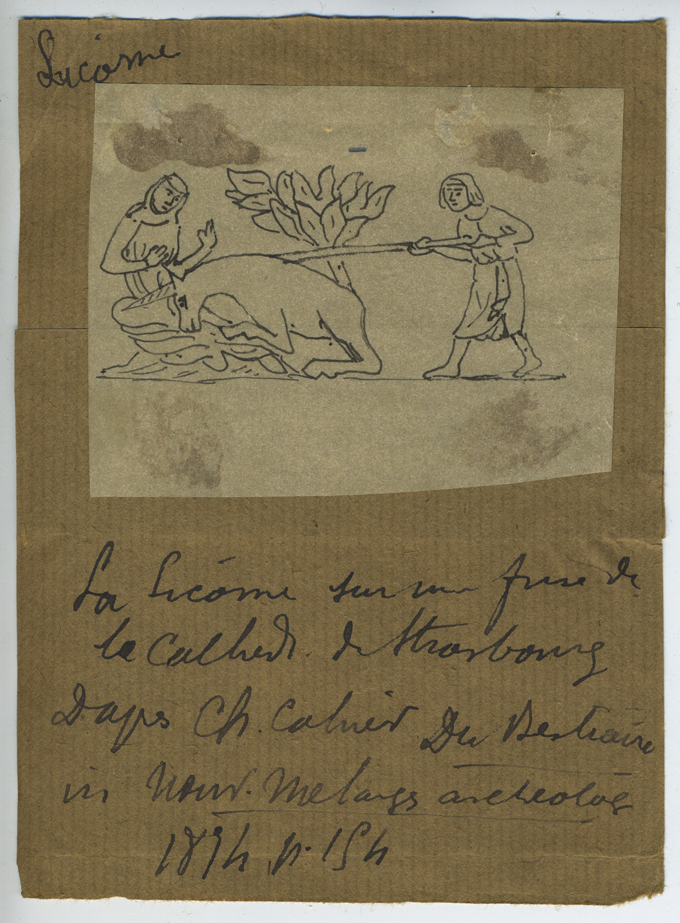 Licorne
La Licorne sur une frise de
la Cathedr. de Strasbourg
Daps Ch. Cahier Du Bestiaire
in Nouv. Melangs archeolog
1874 p. 154